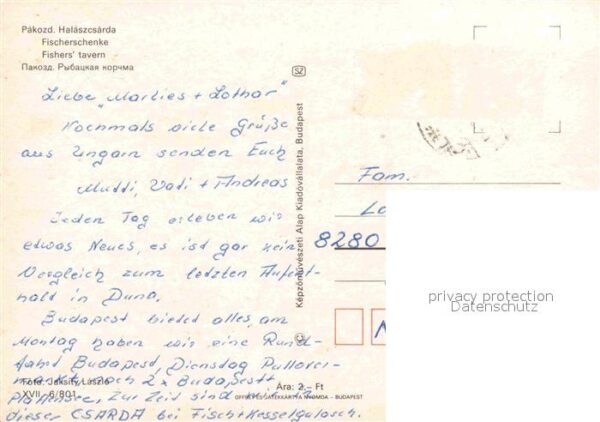 Pákozd. Halászcsárda
Fischerschenke
Fishers' tavern
Пакозд. Рыбацкая корчма
Liebe "Marlies + Lothar"
Nochmals viele Grüße
aus Ungarn senden Euch
Mutti, Vati + Andreas
Jeden Tag erleben wir
etwas Neues, es ist gar kein
Vergleich zum letzten Aufent-
halt in Duna.
Budapest bietet alles, am
Montag haben wir eine Rund-
fahrt Budapest, Dienstag
noch 2 x Budapest +
Plattensee. Zur Zeit sind wir in
dieser CSARDA bei Fisch + Kesselgulasch.
Foto: Jaksity László
XVII. 6/801
Ára: 2,- Ft
OFFSET ÉS JÁTÉKKÁRTYA NYOMDA - BUDAPEST
Képzőművészeti Alap Kiadóvállalata, Budapest
SZ
Fam.
Lo
8280
N
privacy protection
Datenschutz